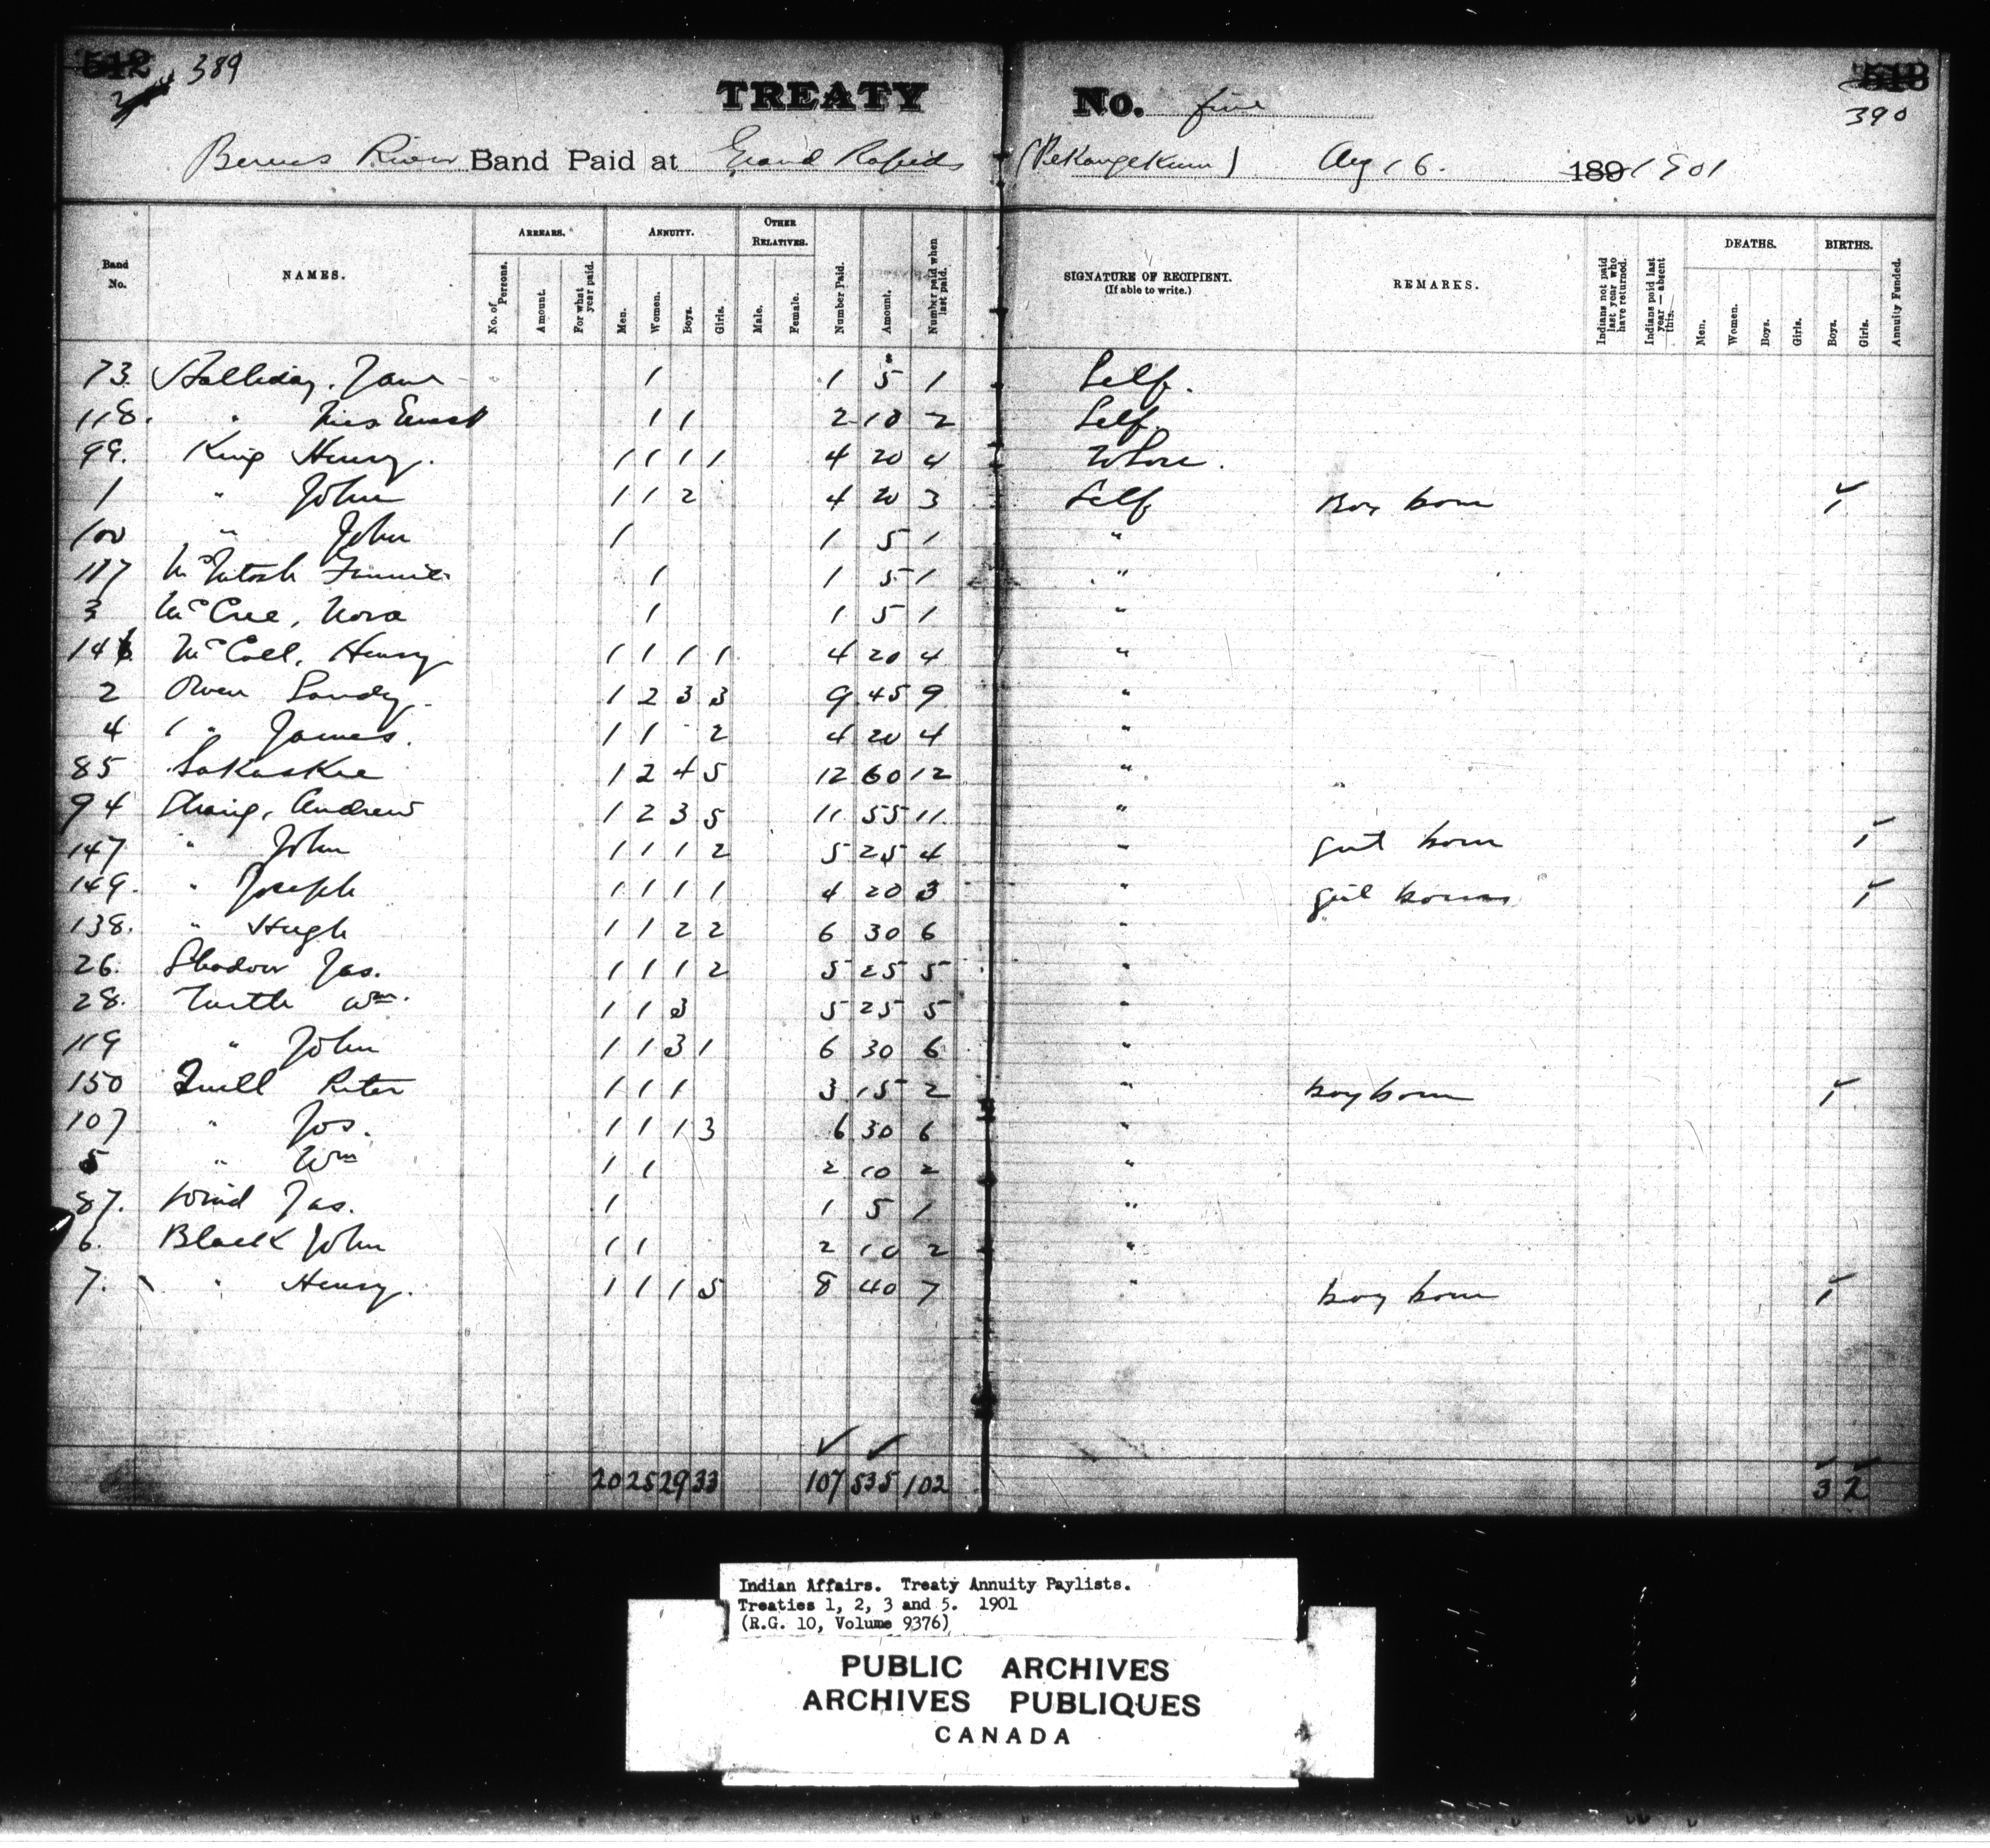 512 389
TREATY No. five
513
390
Berens River Band Paid at Grand Rapids (Pekangekum) Aug 16. 189 1901
Band No. NAMES. ARREARS. No. of Persons. Amount. For what year paid. ANNUITY. Men. Women. Boys. Girls. OTHER RELATIVES. Male. Female. Number Paid. Amount. Number paid when last paid. SIGNATURE OF RECIPIENT. (If able to write.) REMARKS. Indians not paid last year who have returned. Indians paid last year — absent this. DEATHS. Men. Women. Boys. Girls. BIRTHS. Boys. Girls. Annuity Funded.
73. Halliday, Jane 1 1 5 1 Self.
118. " Mrs 1 1 2 10 2 Self.
99. King Henry. 1 1 1 1 4 20 4
1 " John 1 1 2 4 20 3 Self Boy born 1
100 " John 1 1 5 1 "
117 McIntosh 1 1 5 1 "
3 McCree, Nora 1 1 5 1 "
146 McColl, Henry 1 1 1 1 4 20 4 "
2 Owen Sandy 1 2 3 3 9 45 9 "
4 " James. 1 1 2 4 20 4 "
85 Sakaskee 1 2 4 5 12 60 12 "
94 Strang, Andrew 1 2 3 5 11 55 11 "
147 " John 1 1 1 2 5 25 4 " girl born 1
149. " Joseph 1 1 1 1 4 20 3 " girl born 1
138. " Hugh 1 1 2 2 6 30 6 "
26. Shadow Jas. 1 1 1 2 5 25 5 "
28. Turtle Wm. 1 1 3 5 25 5 "
119 " John 1 1 3 1 6 30 6 "
150 Quill Peter 1 1 1 3 15 2 " boy born 1
107 " Jos. 1 1 1 3 6 30 6 "
5 " Wm 1 1 2 10 2 "
87. Wind Jas. 1 1 5 1 "
6. Black John 1 1 2 10 2 "
7. " Henry. 1 1 1 5 8 40 7 " boy born 1
20 25 29 33 107 535 102 3 2
Indian Affairs. Treaty Annuity Paylists.
Treaties 1, 2, 3 and 5. 1901
(R.G. 10, Volume 9376)
PUBLIC ARCHIVES
ARCHIVES PUBLIQUES
CANADA